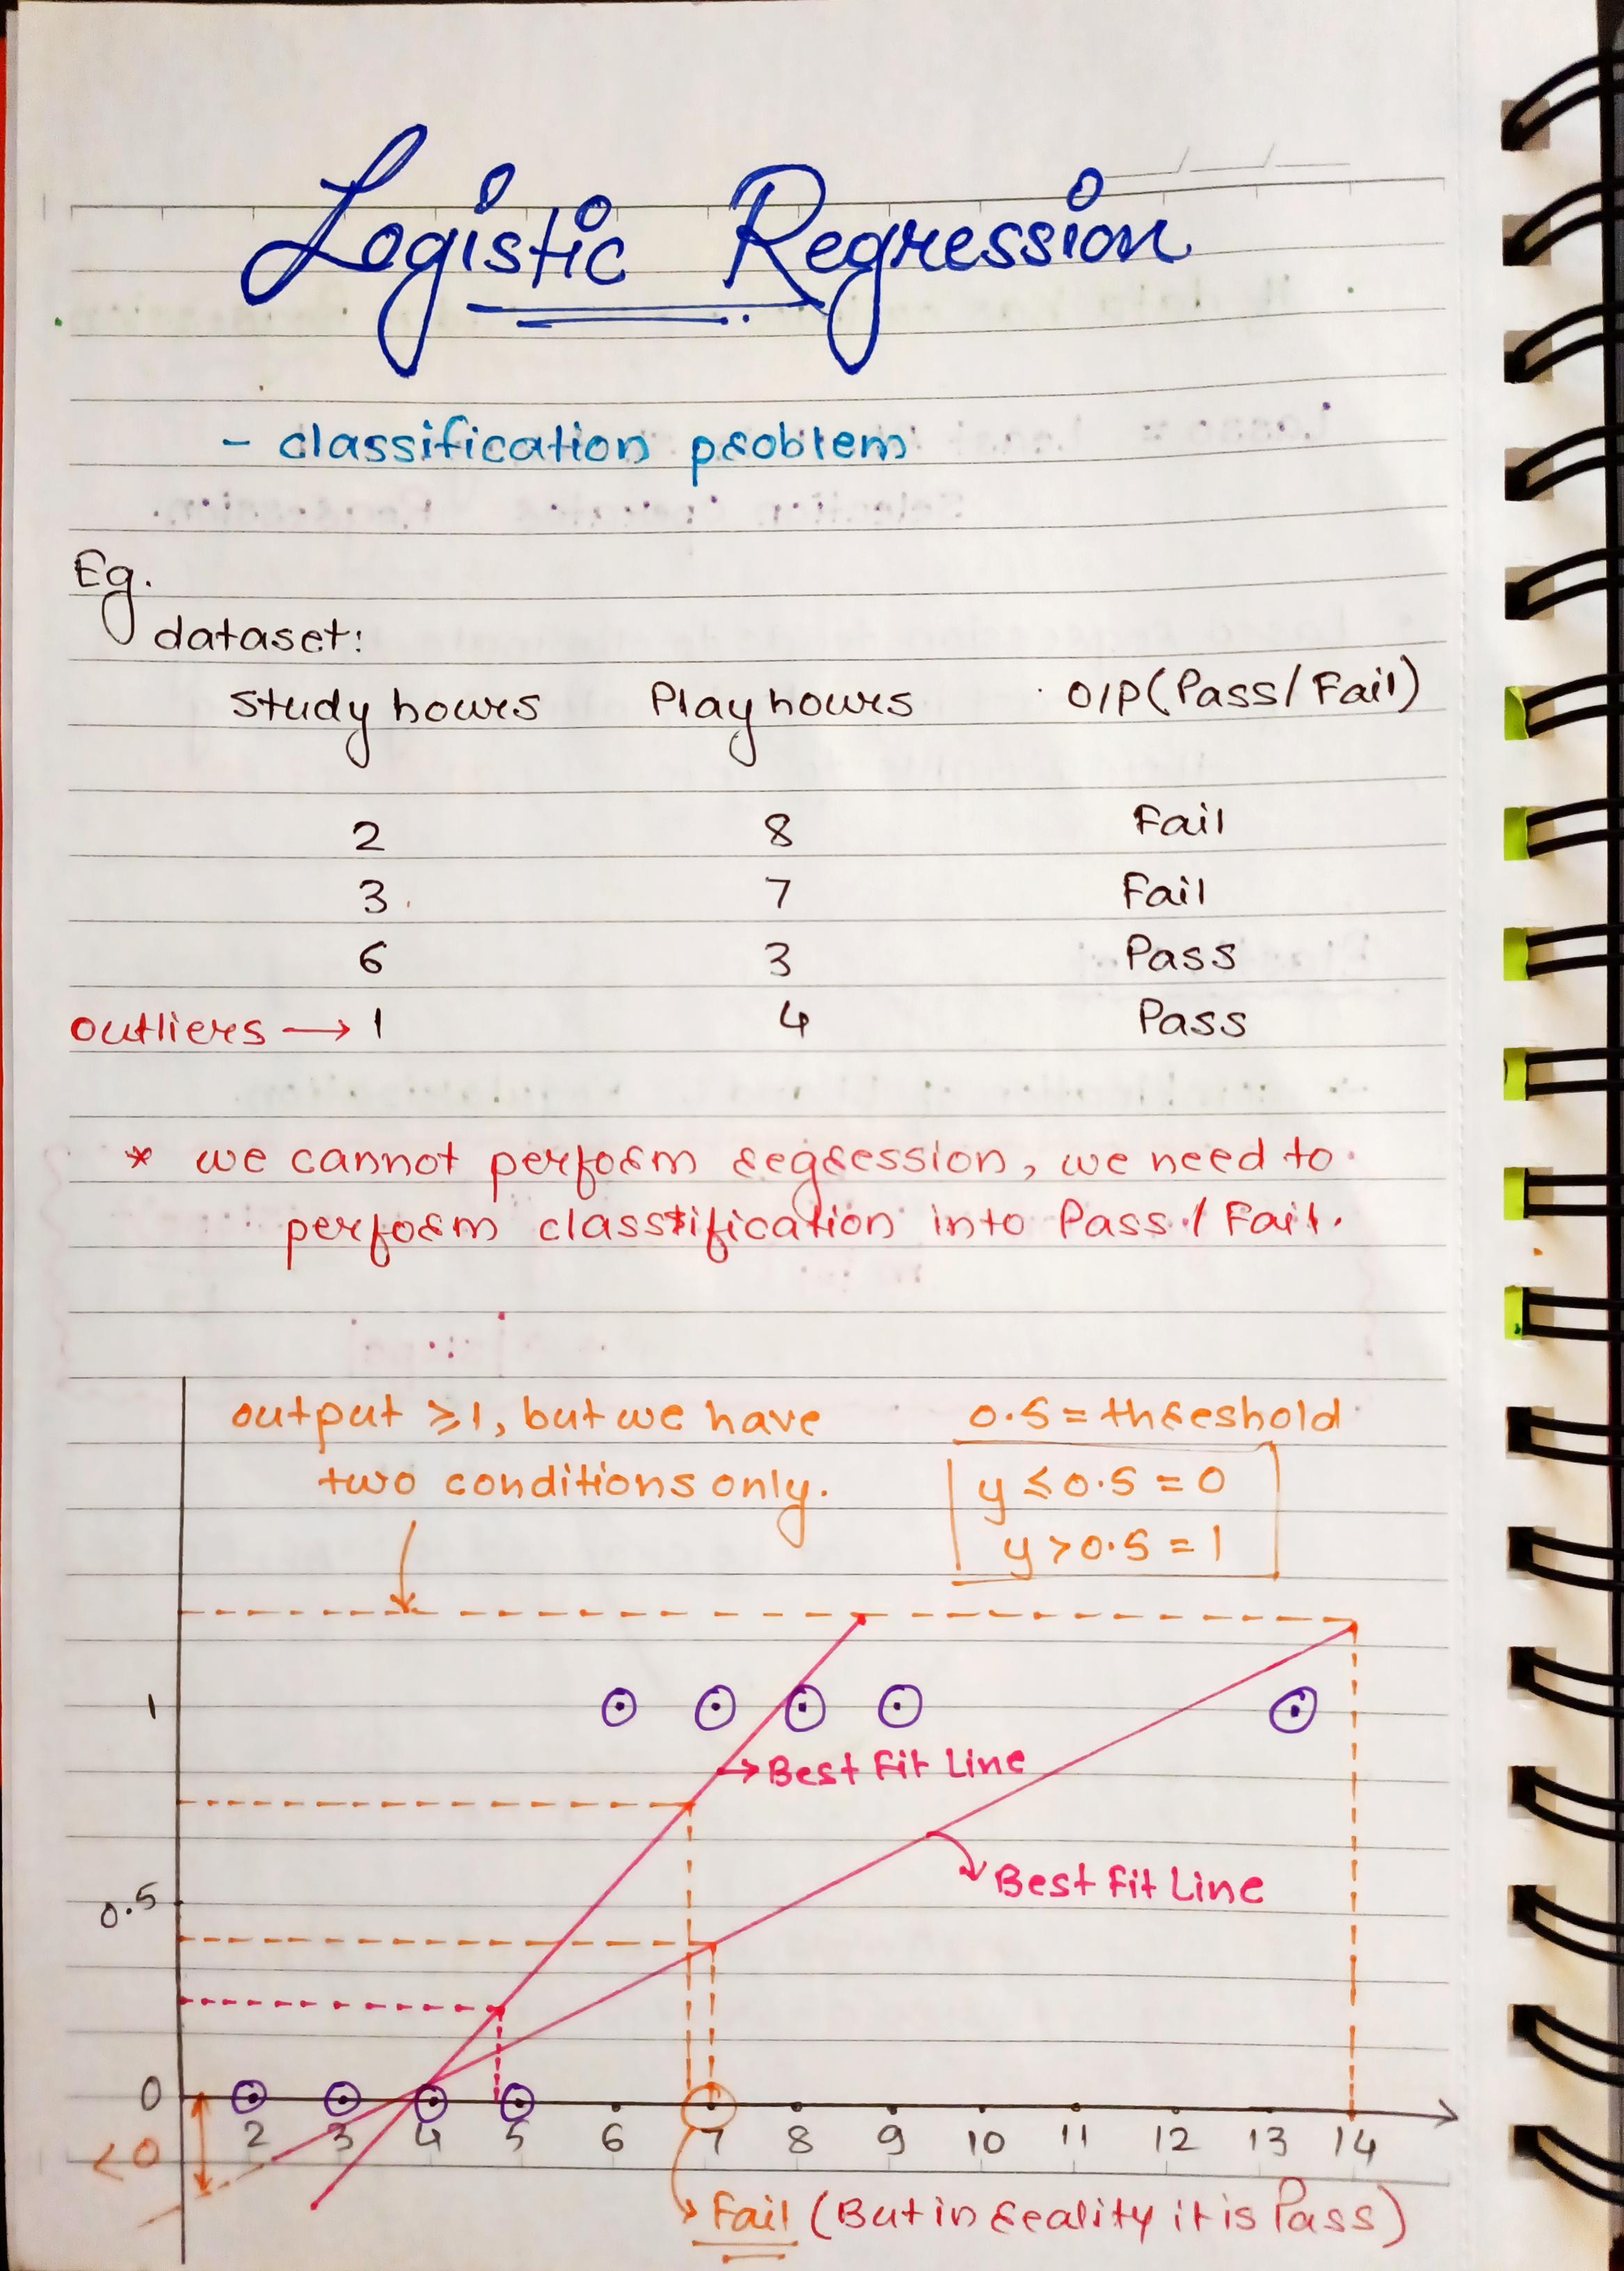 Logistic Regression
- classification problem
Eg.
dataset:
Study hours Play hours O/P(Pass/Fail)
2 8 Fail
3 7 Fail
6 3 Pass
outliers → 1 4 Pass
* we cannot perform regression, we need to
perform classification into Pass / Fail.
output ≥1, but we have
two conditions only.
0.5 = threshold
y ≤ 0.5 = 0
y > 0.5 = 1
1
→ Best Fit Line
0.5
Best Fit Line
0
2 3 4 5 6 7 8 9 10 11 12 13 14
<0
Fail (But in reality it is Pass)